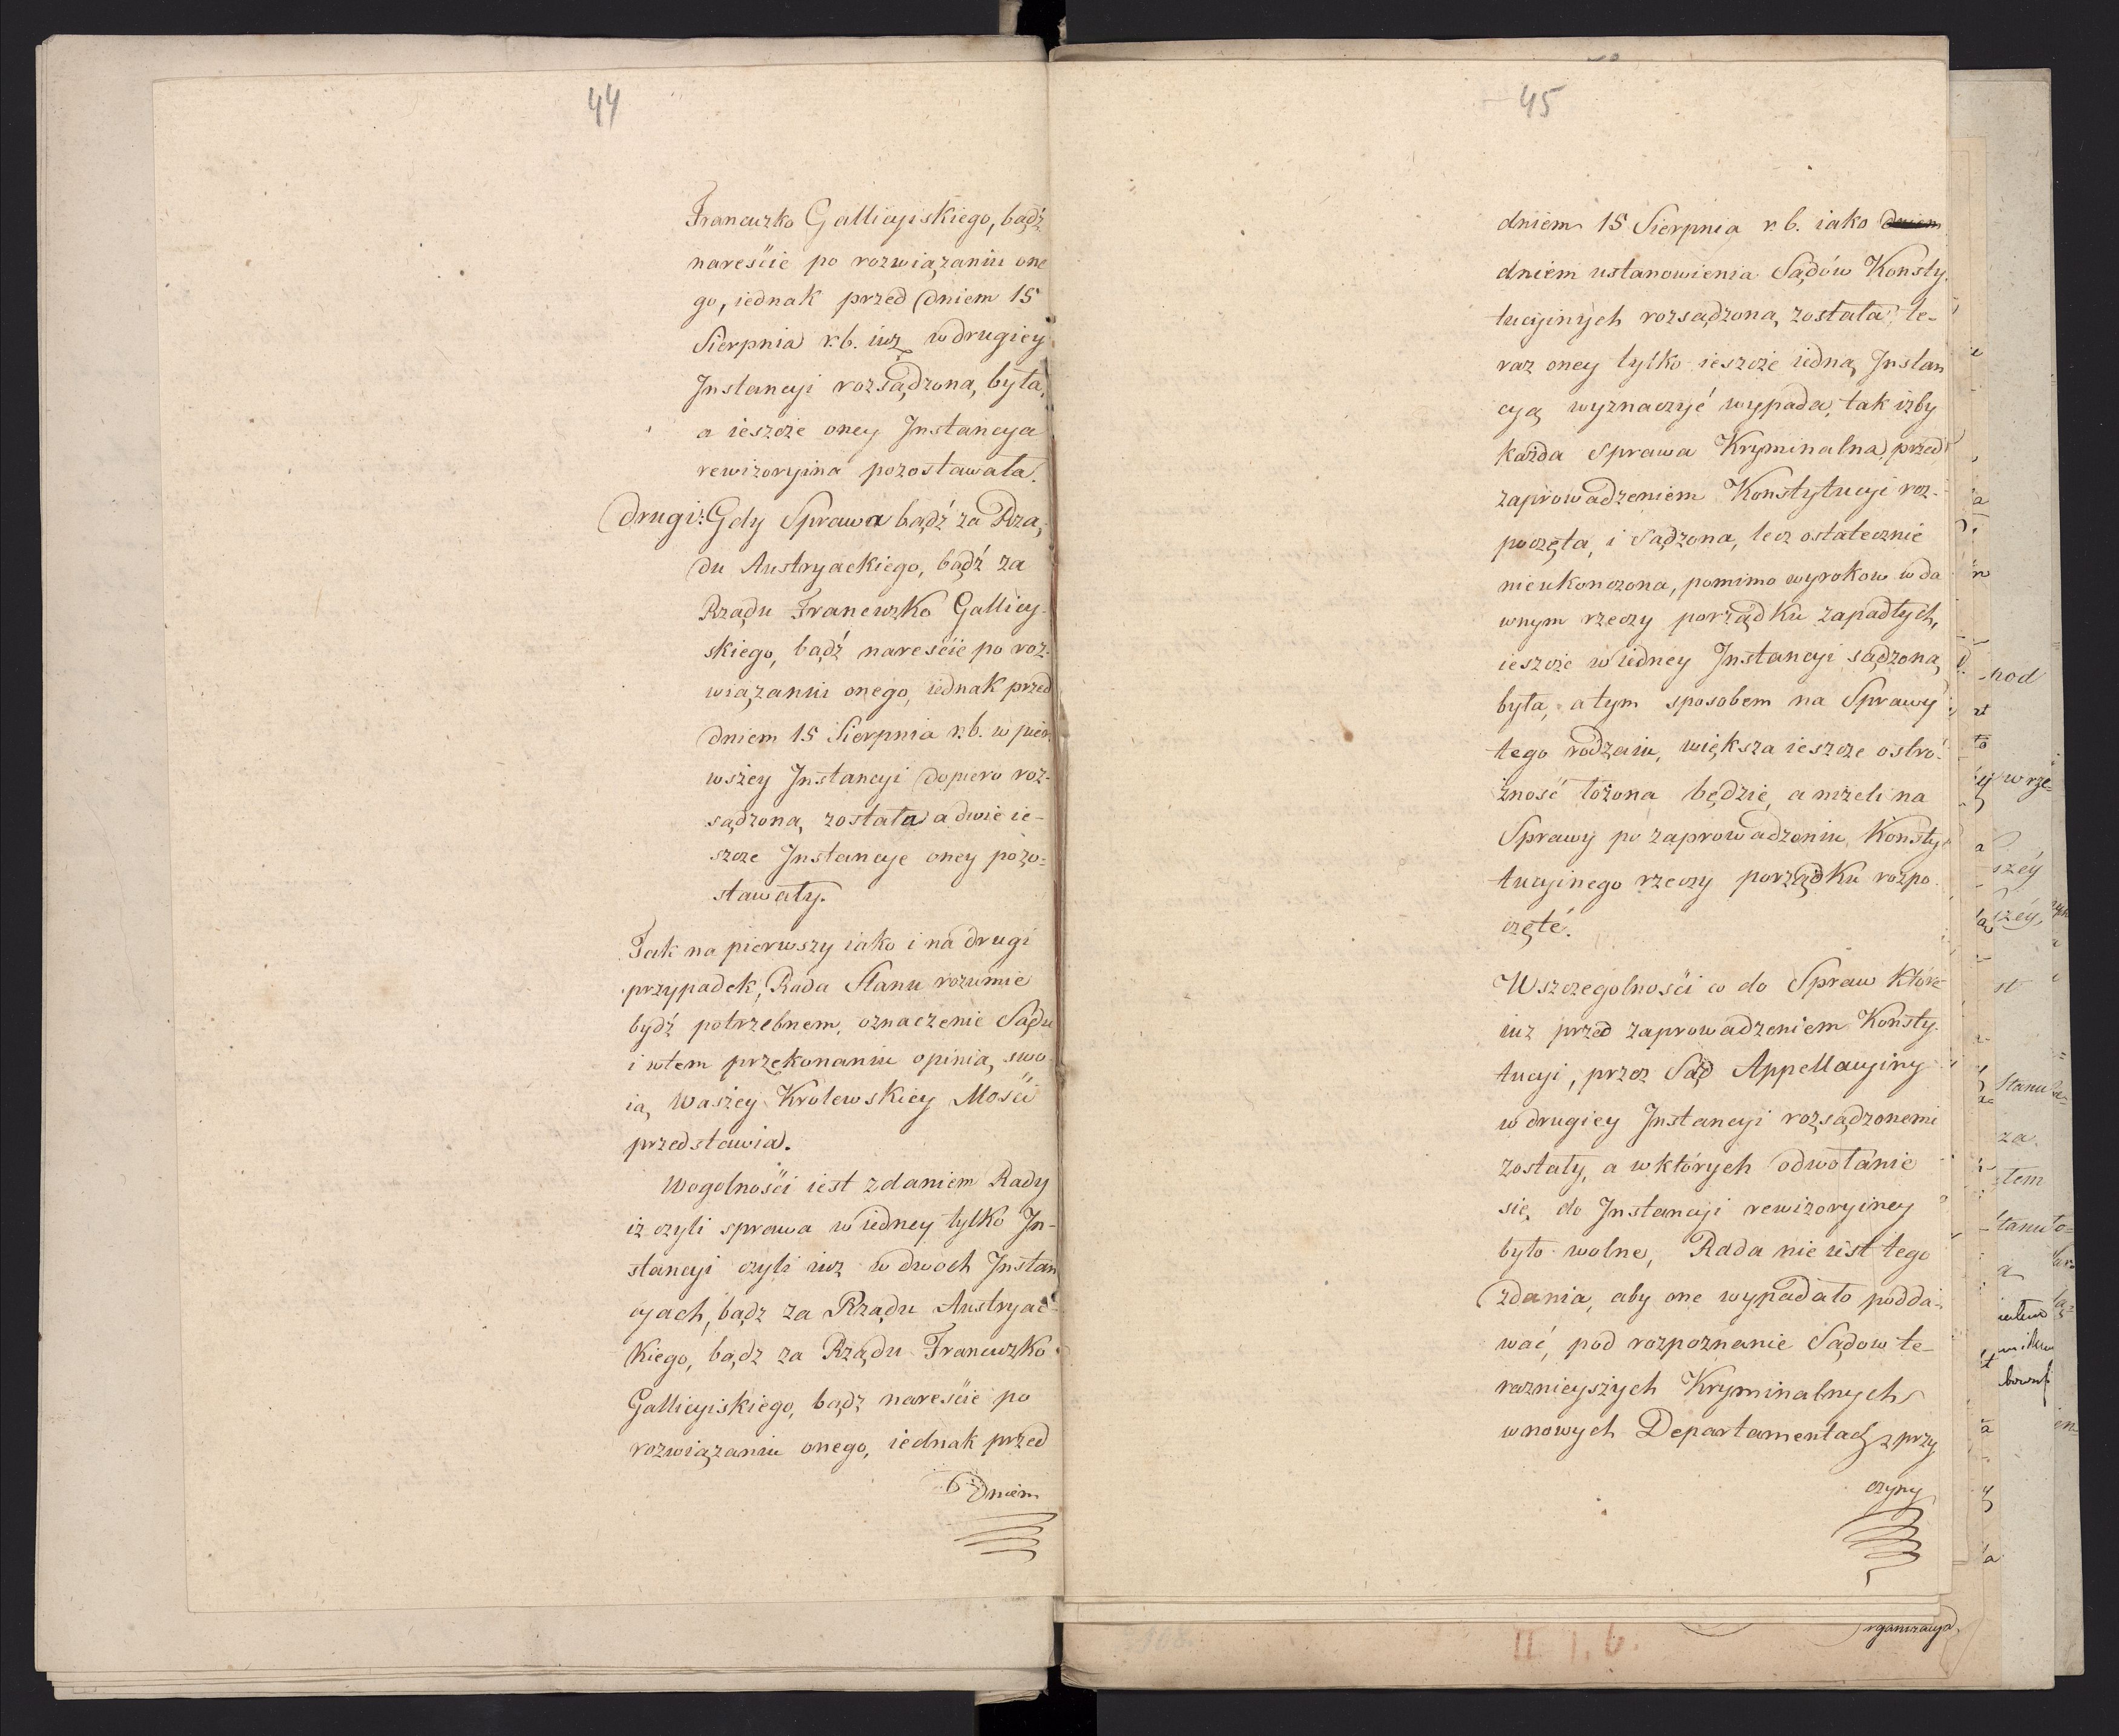 44
Francuzko Gallicyiskiego, bądź
nareście po rozwiązaniu one
go, iednak przed dniem 15
Sierpnia r. b. iuż w drugiey
Instancyi rozsądzoną była,
a ieszcze oney Instancya
rewizoryina pozostawała.
drugi: Gdy Sprawa bądź za Rzą,
du Austryackiego, bądź za
Rządu Francuzko Gallicy-
skiego, bądź nareście po roz-
wiązaniu onego, iednak przed
dniem 15 Sierpnia r. b. w pier-
wszey Instancyi dopiero roz-
sądzoną została a dwie ie-
szcze Instancye oney pozo-
stawały.
Tak na pierwszy iako i na drugi
przypadek, Rada Stanu rozumie
bydź potrzebnem, oznaczenie Sądu
i wtem przekonaniu opinią swo
ią Waszey Krolewskiey Mości
przedstawia.
Wogolności iest zdaniem Rady
iż czyli sprawa w iedney tylko In-
stancyi czyli iuż w dwoch Instan
cyach, bądz za Rządu Austryac-
kiego, bądz za Rządu Francuzko
Gallicyiskiego, bądz nareście po
rozwiązaniu onego, iednak przed
dniem
45
dniem 15 Sierpnia r. b. iako dniem
dniem ustanowienia Sądów Konsty.
tucyinych rozsądzoną została te-
raz oney tylko ieszcze iedną Instan
cyą wyznaczyć wypada, tak iżby
każda Sprawa Kryminalna przed
zaprowadzeniem Konstytucyi roz-
poczęta, i Sądzona, lecz ostatecznie
nieukonczona, pomimo wyrokow w da
wnym rzeczy porządku zapadłych,
ieszcze w iedney Instancyi sądzoną
była, a tym sposobem na Sprawy
tego rodzaiu, większa ieszcze ostro-
żność łożona będzie, anizeli na
Sprawy po zaprowadzeniu Konsty
tucyinego rzeczy porządku rozpo
częte.
Wszczegolności co do Spraw które
iuz przed zaprowadzeniem Konsty-
tucyi, przez Sąd Appellacyiny
w drugiey Instancyi rozsądzonemi
zostały, a w których odwołanie
się do Instancyi rewizoryiney
było wolne, Rada nie iest tego
zdania, aby one wypadało podda-
wać, pod rozpoznanie Sądow te-
raznieyszych Kryminalnych
wnowych Departamentach z przy
czyny
II 1. 6.